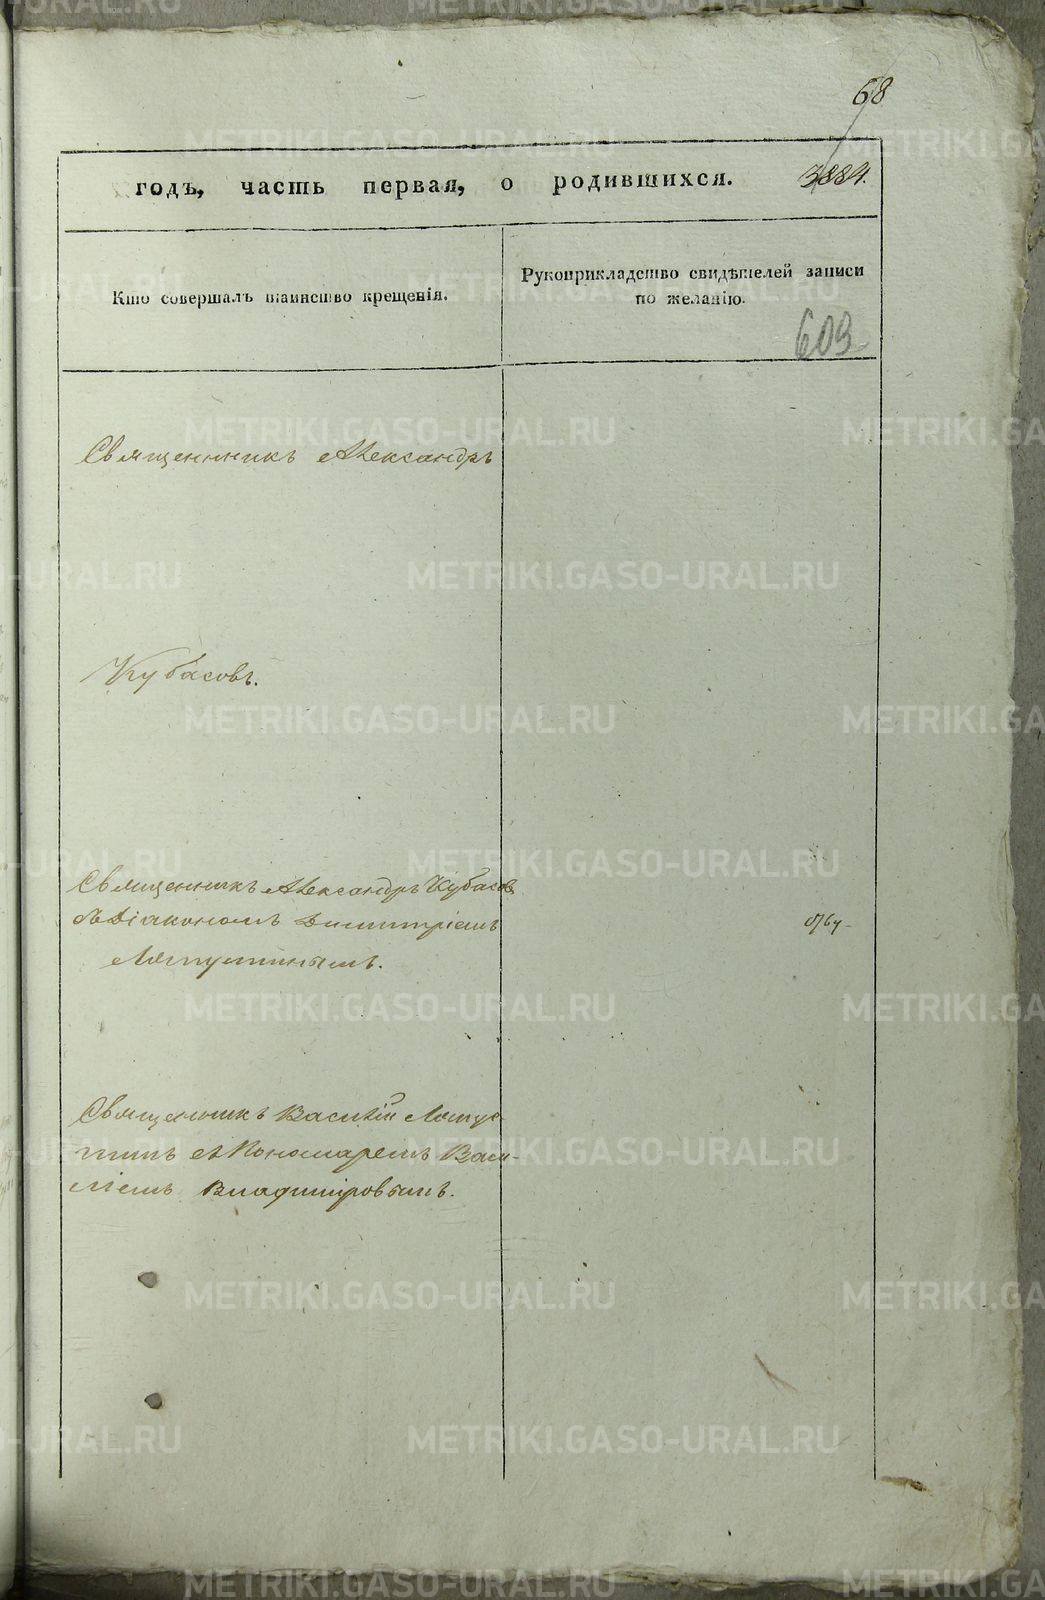 68
годъ, часть первая, о родившихся. 3884.
Кто совершалъ таинство крещенія.
Рукоприкладство свидѣтелей записи
по желанію.
609
Священникъ Александръ
Кубасовъ.
Священникъ Александръ Кубасовъ
съ Діакономъ Димитріемъ
Ляпустинымъ.
Священникъ Василій Ляпус-
тинъ съ Пономаремъ Васи-
ліемъ Владиміровымъ.
METRIKI.GASO-URAL.RU